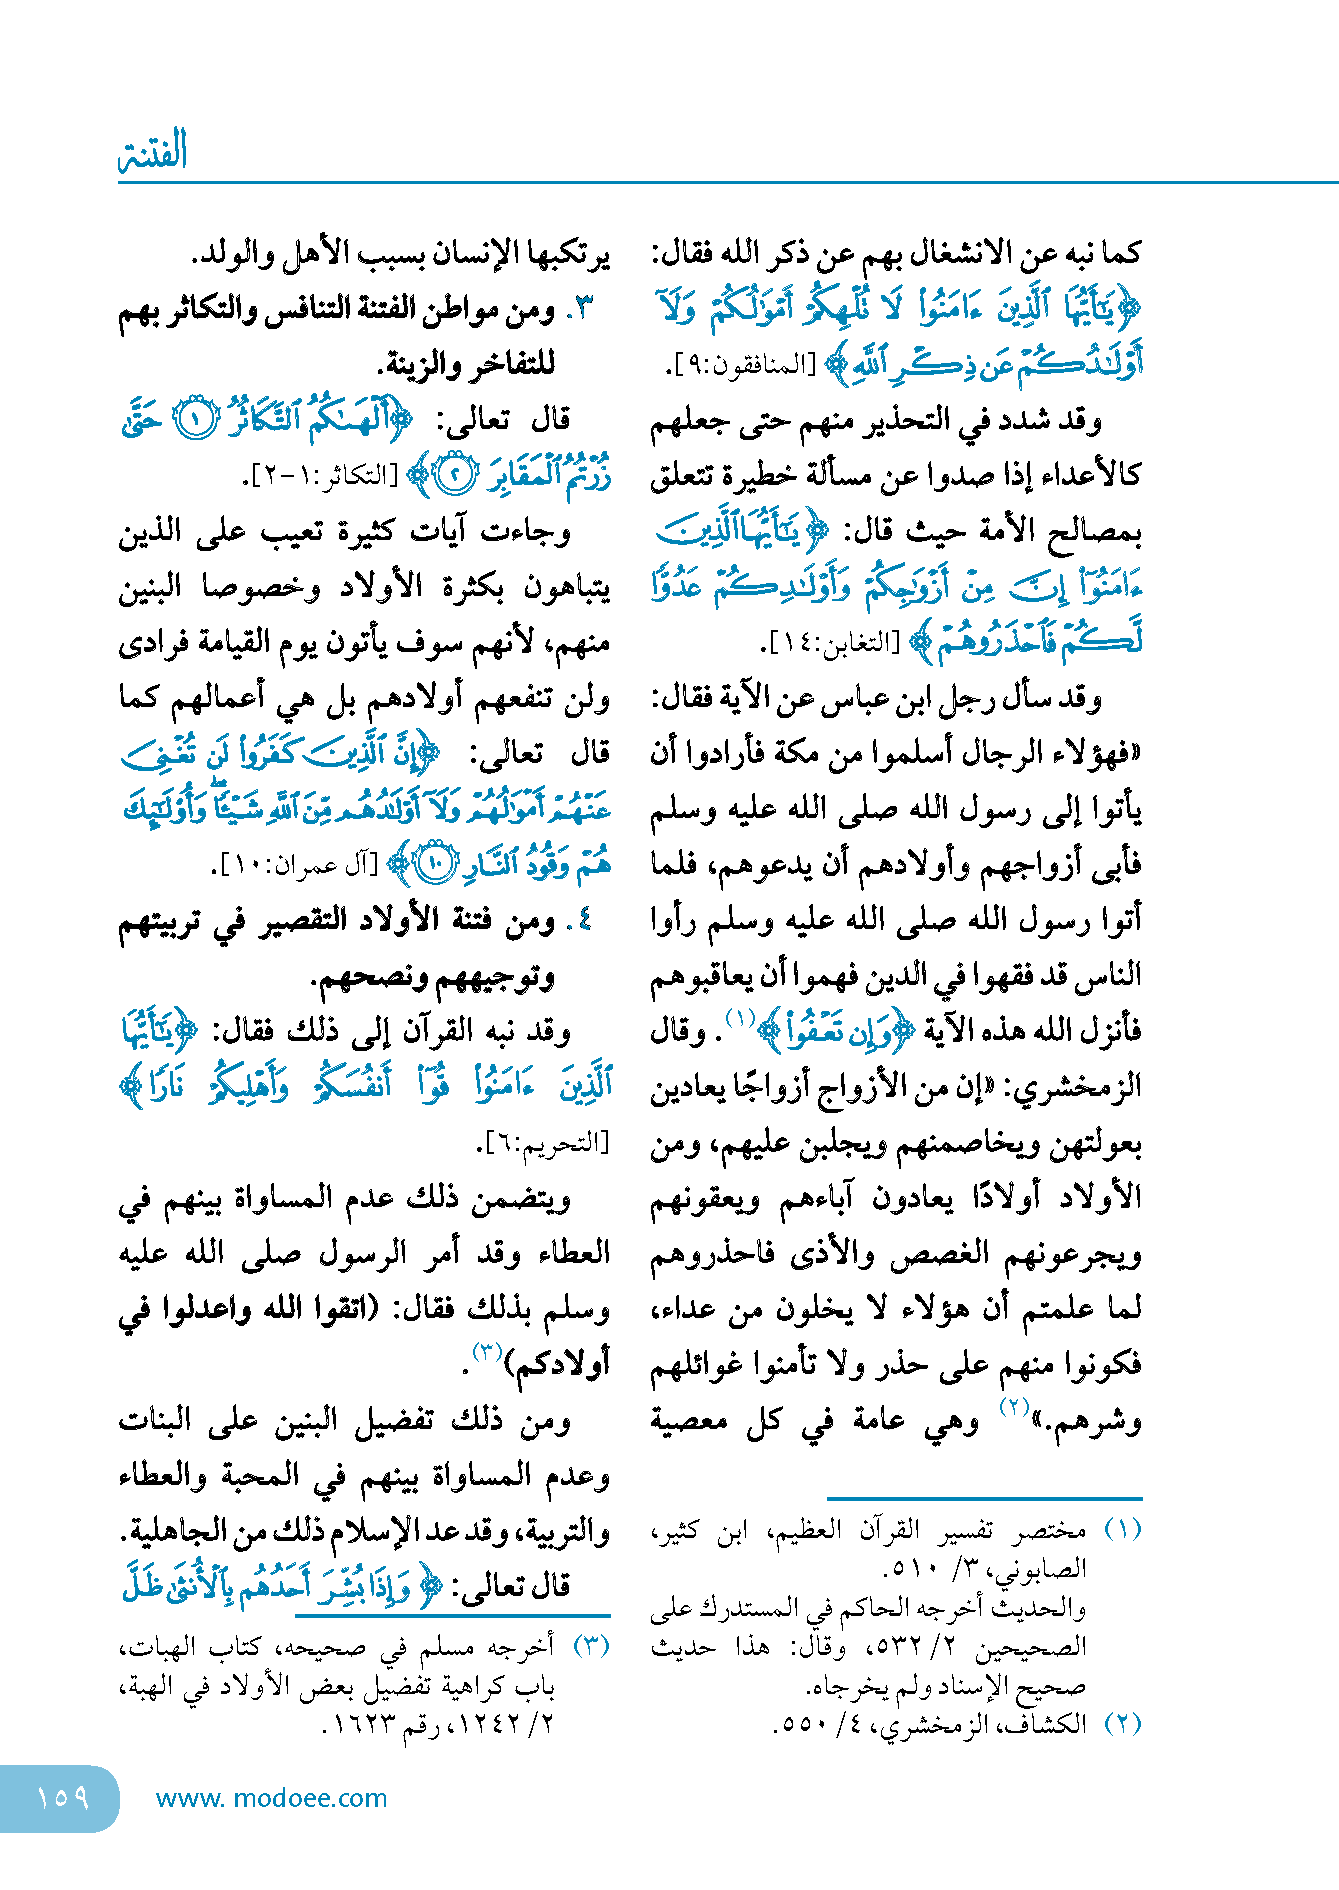 الفتنة
كما نبه عن الانشغال بهم عن ذكر الله فقال:
﴿يَٰٓأَيُّهَا ٱلَّذِينَ ءَامَنُوا۟ لَا تُلْهِكُمْ أَمْوَٰلُكُمْ وَلَآ
أَوْلَٰدُكُمْ عَن ذِكْرِ ٱللَّهِ﴾ [المنافقون:٩].
وقد شدد في التحذير منهم حتى جعلهم
كالأعداء إذا صدوا عن مسألة خطيرة تتعلق
بمصالح الأمة حيث قال: ﴿يَٰٓأَيُّهَا ٱلَّذِينَ
ءَامَنُوٓا۟ إِنَّ مِنْ أَزْوَٰجِكُمْ وَأَوْلَٰدِكُمْ عَدُوًّا
لَّكُمْ فَٱحْذَرُوهُمْ﴾ [التغابن:١٤].
وقد سأل رجل ابن عباس عن الآية فقال:
«فهؤلاء الرجال أسلموا من مكة فأرادوا أن
يأتوا إلى رسول الله صلى الله عليه وسلم
فأبى أزواجهم وأولادهم أن يدعوهم، فلما
أتوا رسول الله صلى الله عليه وسلم رأوا
الناس قد فقهوا في الدين فهموا أن يعاقبوهم
فأنزل الله هذه الآية ﴿وَإِن تَعْفُوا۟﴾(١). وقال
الزمخشري: «إن من الأزواج أزواجًا يعادين
بعولتهن ويخاصمنهم ويجلبن عليهم، ومن
الأولاد أولادًا يعادون آباءهم ويعقونهم
ويجرعونهم الغصص والأذى فاحذروهم
لما علمتم أن هؤلاء لا يخلون من عداء،
فكونوا منهم على حذر ولا تأمنوا غوائلهم
وشرهم.»(٢) وهي عامة في كل معصية
(١) مختصر تفسير القرآن العظيم، ابن كثير،
الصابوني، ٣/ ٥١٠.
والحديث أخرجه الحاكم في المستدرك على
الصحيحين ٢/ ٥٣٢، وقال: هذا حديث
صحيح الإسناد ولم يخرجاه.
(٢) الكشاف، الزمخشري، ٤/ ٥٥٠.
يرتكبها الإنسان بسبب الأهل والولد.
٣. ومن مواطن الفتنة التنافس والتكاثر بهم
للتفاخر والزينة.
قال تعالى: ﴿أَلْهَىٰكُمُ ٱلتَّكَاثُرُ ١ حَتَّىٰ
زُرْتُمُ ٱلْمَقَابِرَ ٢﴾ [التكاثر:١-٢].
وجاءت آيات كثيرة تعيب على الذين
يتباهون بكثرة الأولاد وخصوصا البنين
منهم، لأنهم سوف يأتون يوم القيامة فرادى
ولن تنفعهم أولادهم بل هي أعمالهم كما
قال تعالى: ﴿إِنَّ ٱلَّذِينَ كَفَرُوا۟ لَن تُغْنِىَ
عَنْهُمْ أَمْوَٰلُهُمْ وَلَآ أَوْلَٰدُهُم مِّنَ ٱللَّهِ شَيْـًٔا ۖ وَأُو۟لَٰٓئِكَ
هُمْ وَقُودُ ٱلنَّارِ ١٠﴾ [آل عمران:١٠].
٤. ومن فتنة الأولاد التقصير في تربيتهم
وتوجيههم ونصحهم.
وقد نبه القرآن إلى ذلك فقال: ﴿يَٰٓأَيُّهَا
ٱلَّذِينَ ءَامَنُوا۟ قُوٓا۟ أَنفُسَكُمْ وَأَهْلِيكُمْ نَارًا﴾
[التحريم:٦].
ويتضمن ذلك عدم المساواة بينهم في
العطاء وقد أمر الرسول صلى الله عليه
وسلم بذلك فقال: (اتقوا الله واعدلوا في
أولادكم)(٣).
ومن ذلك تفضيل البنين على البنات
وعدم المساواة بينهم في المحبة والعطاء
والتربية، وقد عد الإسلام ذلك من الجاهلية.
قال تعالى: ﴿وَإِذَا بُشِّرَ أَحَدُهُم بِٱلْأُنثَىٰ ظَلَّ
(٣) أخرجه مسلم في صحيحه، كتاب الهبات،
باب كراهية تفضيل بعض الأولاد في الهبة،
٢/ ١٢٤٢، رقم ١٦٢٣.
www. modoee.com
١٥٩